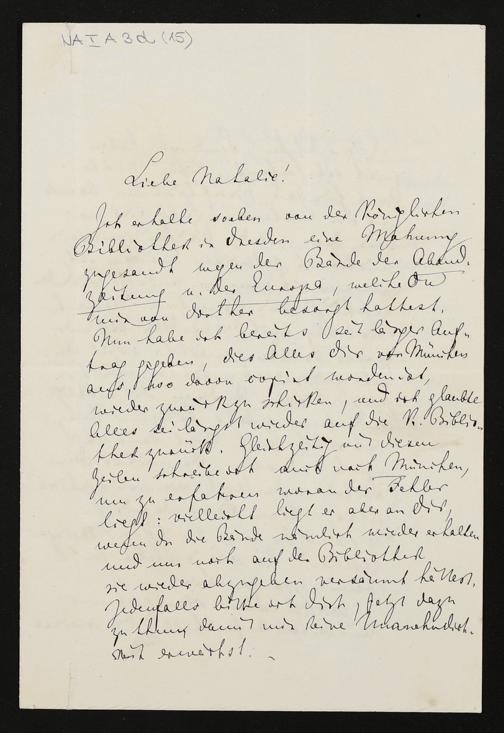 NA I A 3d (15)
Liebe Natalie!
Ich erhalte soeben von der Königlichen
Bibliothek in Dresden eine Mahnung
zugesandt wegen der Bände der Abend-
zeitung u. der Europa, welche Du
mir von dorther besorgt hattest.
Nun habe ich bereits seit länger Auf-
trag gegeben, dies Alles Dir von München
aus, wo davon copirt worden ist,
wieder zurückzu schicken, und ich glaubte
Alles sei längst wieder auf die K. Biblio-
thek zurück. Gleichzeitig mit diesen
Zeilen schreibe ich auch nach München,
um zu erfahren woran der Fehler
liegt: vielleicht liegt er aber an Dir,
wenn Du die Bände nämlich wieder erhalten
und nur noch auf der Bibliothek
sie wieder abzugeben versäumt hättest.
Jedenfalls bitte ich Dich, jetzt dazu
zu thun, damit mir keine Unannehmlich-
keit erwächst. _